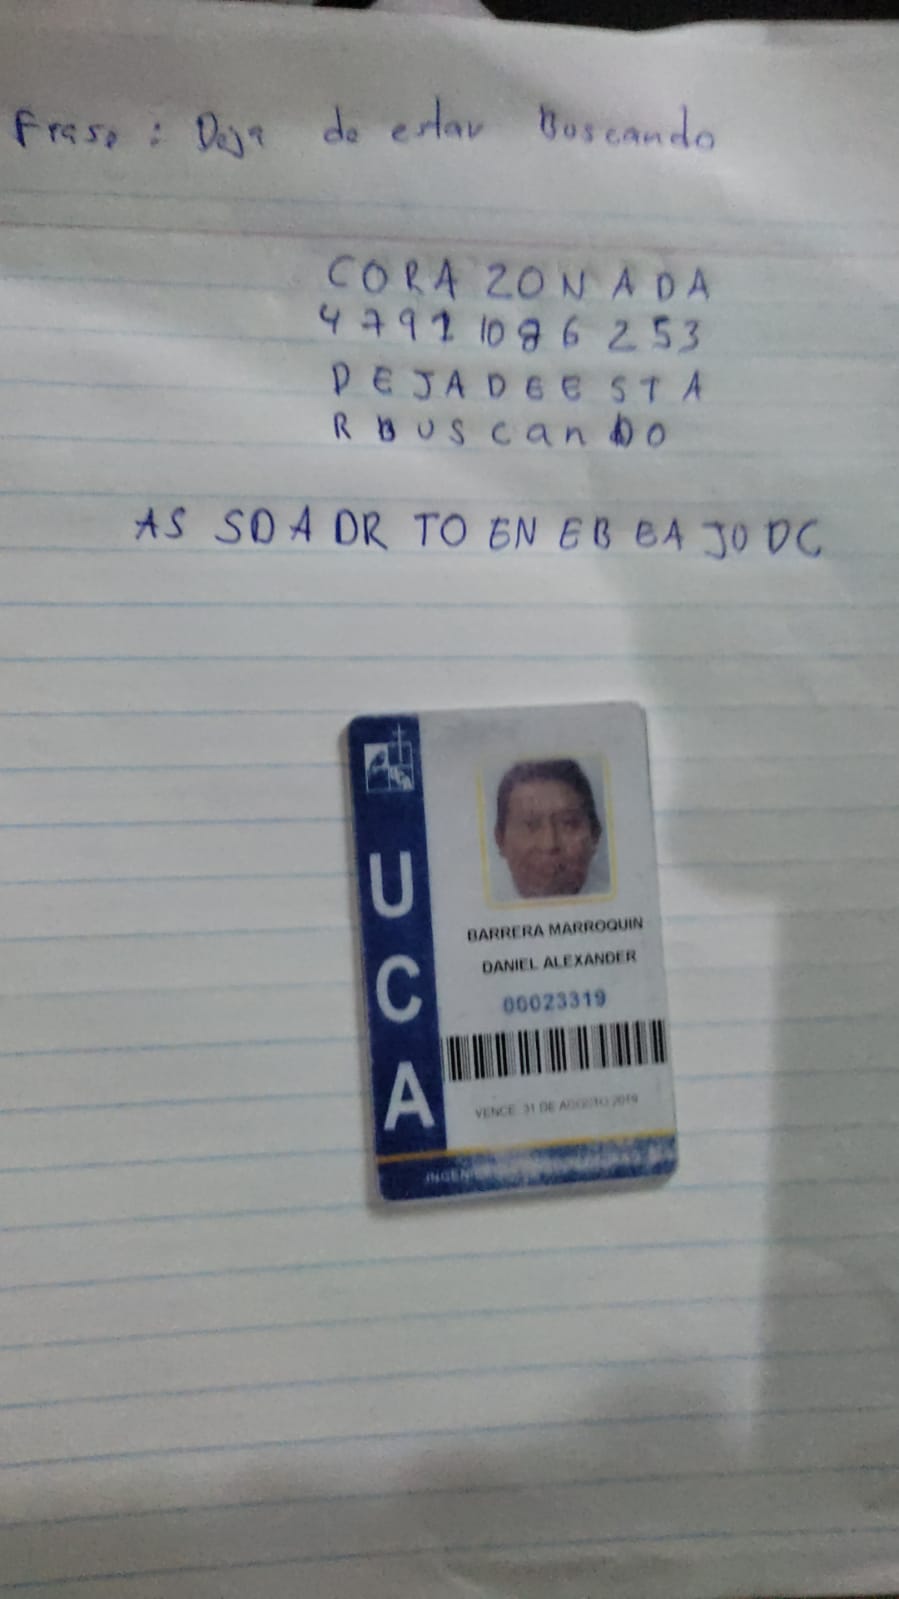 Frase : Deja de estar Buscando
CORAZONADA
4 7 9 1 10 8 6 2 5 3
DEJADEESTA
RBUScanDO
AS SD A DR TO EN EB EA JO DC
U
C
A
BARRERA MARROQUIN
DANIEL ALEXANDER
00023319
VENCE: 31 DE AGOSTO 2019